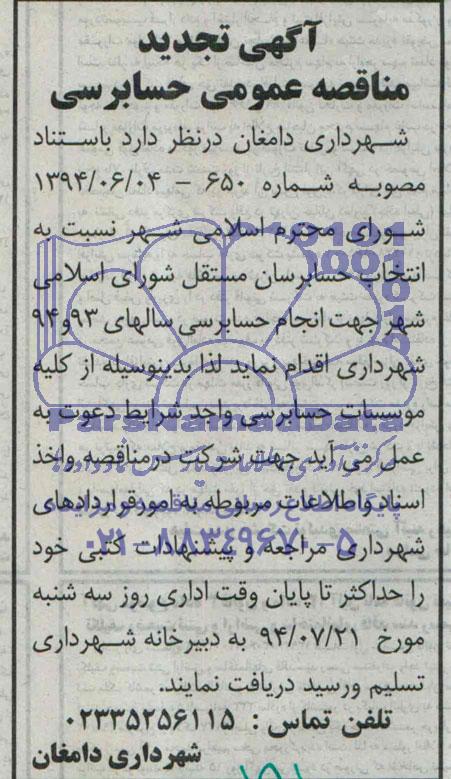 آگهی تجدید
مناقصه عمومی حسابرسی
شهرداری دامغان درنظر دارد باستناد
مصوبه شماره ۶۵۰ – ۱۳۹۴/۰۶/۰۴
شورای محترم اسلامی شهر نسبت به
انتخاب حسابرسان مستقل شورای اسلامی
شهر جهت انجام حسابرسی سالهای ۹۳و۹۴
شهرداری اقدام نماید لذا بدینوسیله از کلیه
موسسات حسابرسی واجد شرایط دعوت به
عمل می آید جهت شرکت در مناقصه واخذ
اسناد واطلاعات مربوطه به امور قراردادهای
شهرداری مراجعه و پیشنهادات کتبی خود
را حداکثر تا پایان وقت اداری روز سه شنبه
مورخ ۹۴/۰۷/۲۱ به دبیرخانه شهرداری
تسلیم ورسید دریافت نمایند.
تلفن تماس : ۰۲۳۳۵۲۵۶۱۱۵
شهرداری دامغان
ParsNamadData
۰۲۱-۸۸۳۴۹۶۷۰-۵